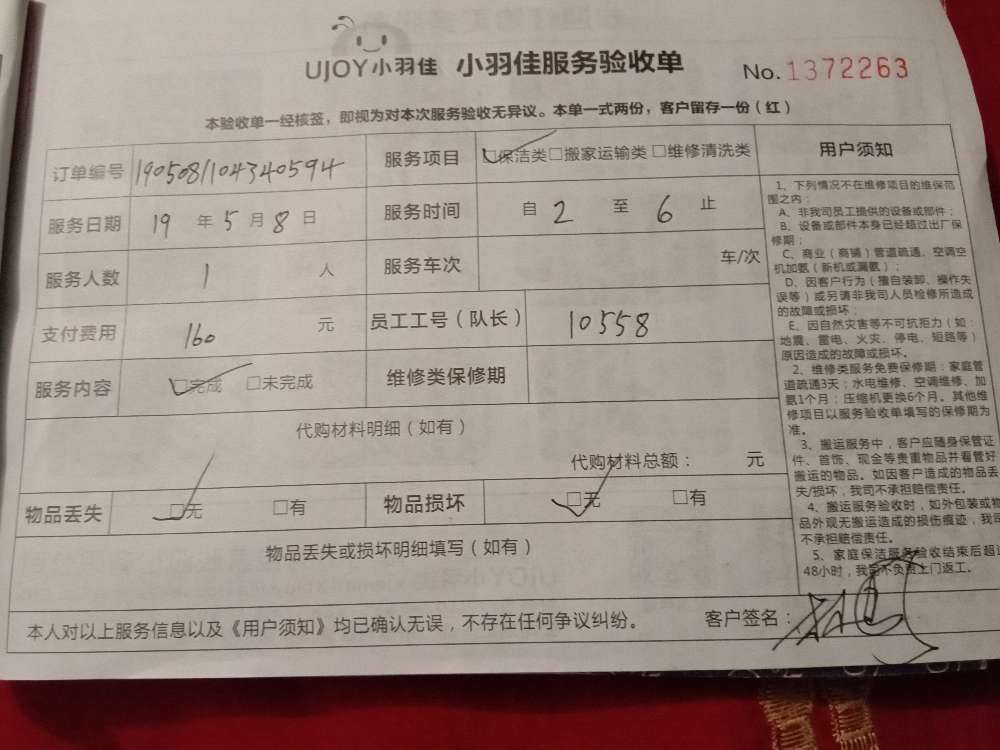 UJOY小羽佳 小羽佳服务验收单 No.1372263
本验收单一经核签，即视为对本次服务验收无异议。本单一式两份，客户留存一份（红）
订单编号 190508104340594 服务项目 □保洁类□搬家运输类 □维修清洗类
服务日期 19 年 5 月 8 日 服务时间 自 2 至 6 止
服务人数 1 人 服务车次 车/次
支付费用 160 元 员工工号（队长） 10558
服务内容 □完成 □未完成 维修类保修期
代购材料明细（如有）
代购材料总额： 元
物品丢失 □无 □有 物品损坏 □无 □有
物品丢失或损坏明细填写（如有）
本人对以上服务信息以及《用户须知》均已确认无误，不存在任何争议纠纷。 客户签名：
用户须知
1、下列情况不在维修项目的维保范
围之内：
A、非我司员工提供的设备或部件；
B、设备或部件本身已经超过出厂保
修期；
C、商业（商铺）管道疏通、空调空
机加氨（新机或漏氨）；
D、因客户行为（擅自装卸、操作失
误等）或另请非我司人员检修所造成
的故障或损坏；
E、因自然灾害等不可抗拒力（如：
地震、雷电、火灾、停电、短路等）
原因造成的故障或损坏。
2、维修类服务免费保修期：家庭管
道疏通3天；水电维修、空调维修、加
氨1个月；压缩机更换6个月。其他维
修项目以服务验收单填写的保修期为
准。
3、搬运服务中，客户应随身保管证
件、首饰、现金等贵重物品并看管好
搬运的物品。如因客户造成的物品丢
失/损坏，我司不承担赔偿责任。
4、搬运服务验收时，如外包装或物
品外观无搬运造成的损伤痕迹，我司
不承担赔偿责任。
5、家庭保洁服务验收结束后超过
48小时，我司不负责上门返工。